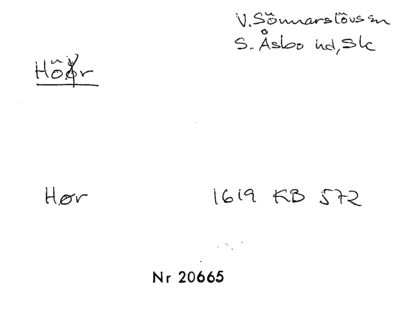 V. Sönnarslövs sn
S. Åsbo hd, Sk
Höör
Hør 1619 KB 572
Nr 20665